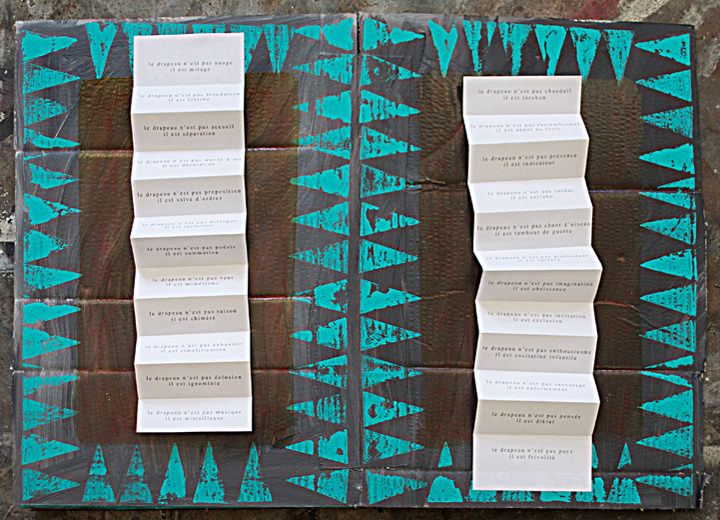 le drapeau n'est pas nuage
il est mirage
le drapeau n'est pas frondaison
il est fétiche
le drapeau n'est pas accueil
il est séparation
le drapeau n'est pas œuvre d'art
il est décoration
le drapeau n'est pas proposition
il est salve d'ordres
le drapeau n'est pas dialogue
il est
le drapeau n'est pas poésie
il est sommation
le drapeau n'est pas vent
il est mimétisme
le drapeau n'est pas raison
il est chimère
le drapeau n'est pas exhaustif
il est simplification
le drapeau n'est pas éclosion
il est ignominie
le drapeau n'est pas musique
il est mitrailleuse
le drapeau n'est pas chandail
il est torchon
le drapeau n'est pas rassembleur
il est appel au fusil
le drapeau n'est pas présence
il est indicateur
le drapeau n'est pas soldat
il est
le drapeau n'est pas chant d'oiseau
il est tambour de guerre
le drapeau n'est pas
il est
le drapeau n'est pas imagination
il est obéissance
le drapeau n'est pas invitation
il est exclusion
le drapeau n'est pas enthousiasme
il est excitation infantile
le drapeau n'est pas sauvetage
il est enfermement
le drapeau n'est pas pensée
il est diktat
le drapeau n'est pas pays
il est frivolité